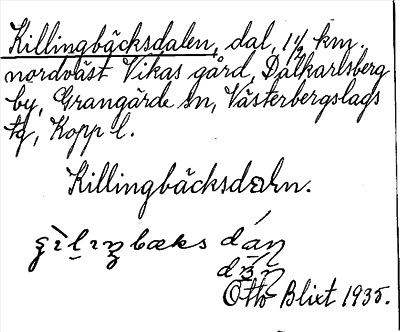 Killingbäcksdalen, dal, 1 1/2 km.
nordväst Vikas gård, Dalkarlsberg
by, Grangärde sn, Västerbergslags
tg, Kopp l.
Killingbäcksdaln.
Otto Blixt 1935.